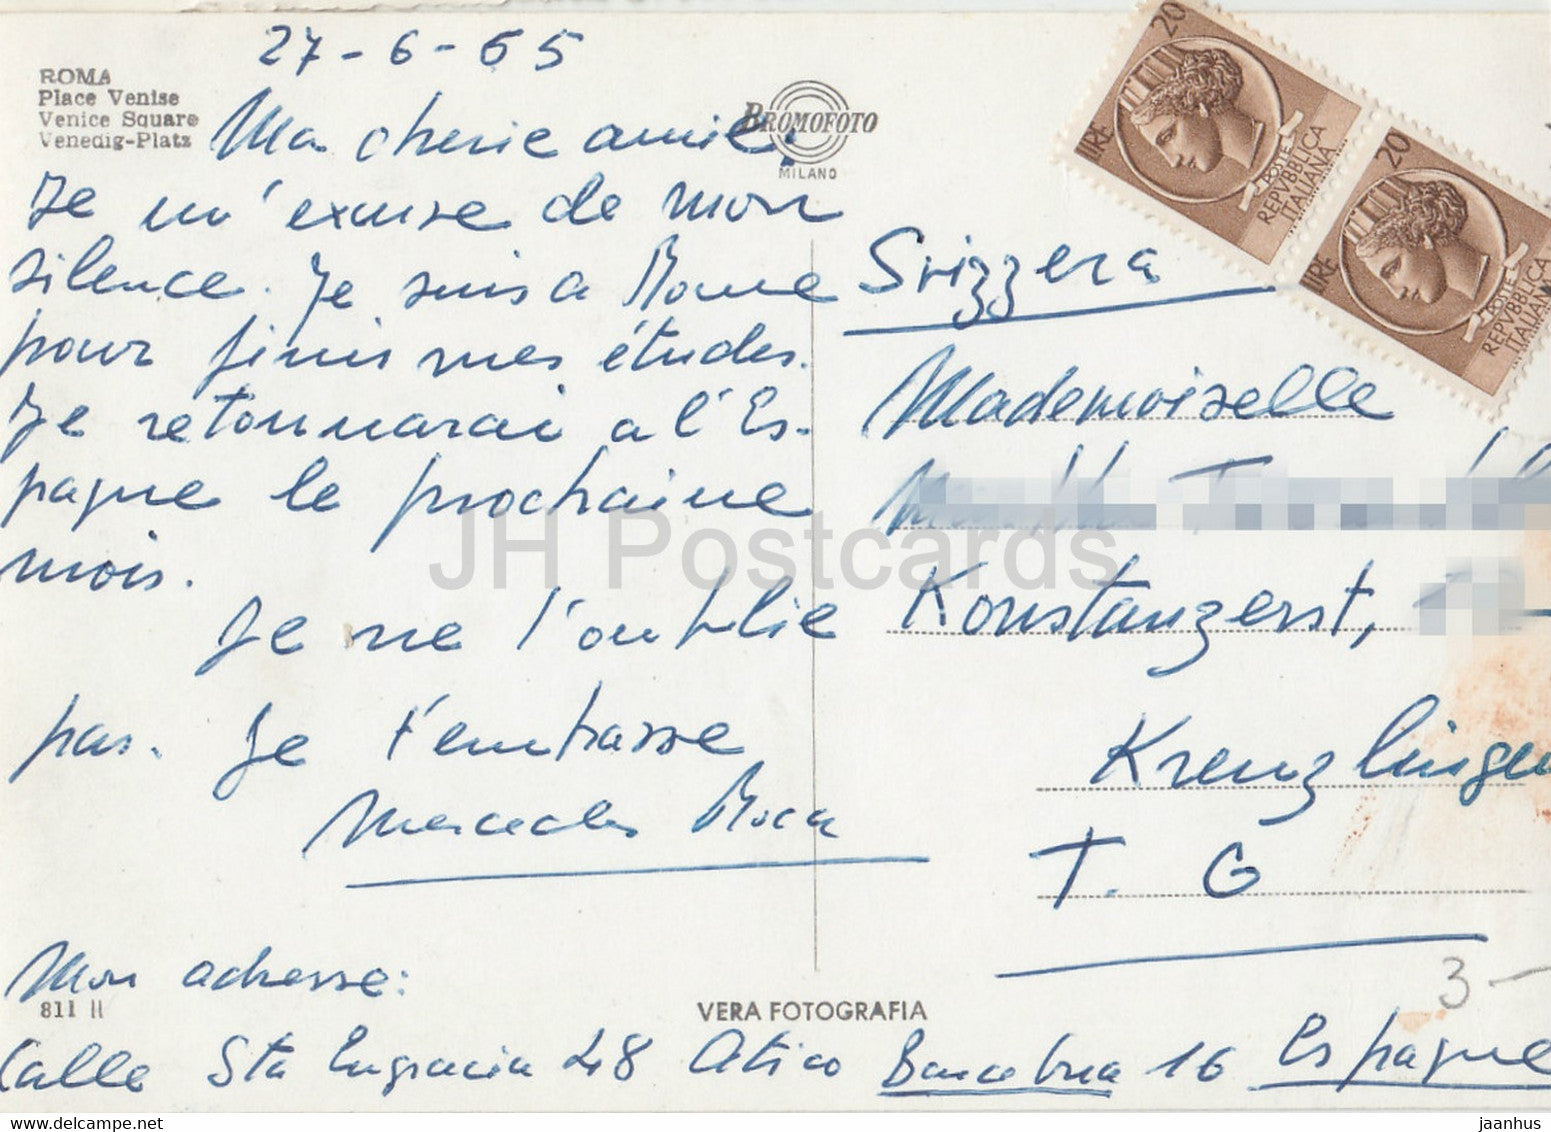 27-6-65
ROMA
Place Venise
Venice Square
Venedig-Platz
BROMOFOTO
MILANO
Ma cherie amie,
Je m'excuse de mon
silence. Je suis a Rome
pour finir mes études.
Je retournarai a l'Es-
pagne le prochaine
mois.
Je ne l'oublie
pas. Je t'embrasse
Mercedes Roca
Mon adresse:
811 II
Calle Sta Eugracia 48 Atico Barcelona 16 Espagne
VERA FOTOGRAFIA
20
LIRE
POSTE
REPVBBLICA
ITALIANA
20
LIRE
POSTE
REPVBBLICA
ITALIANA
Svizzera
Mademoiselle
Konstanzerst,
Kreuzlingen
T. G
3-
JH Postcards
delcampe.net
jaanhus